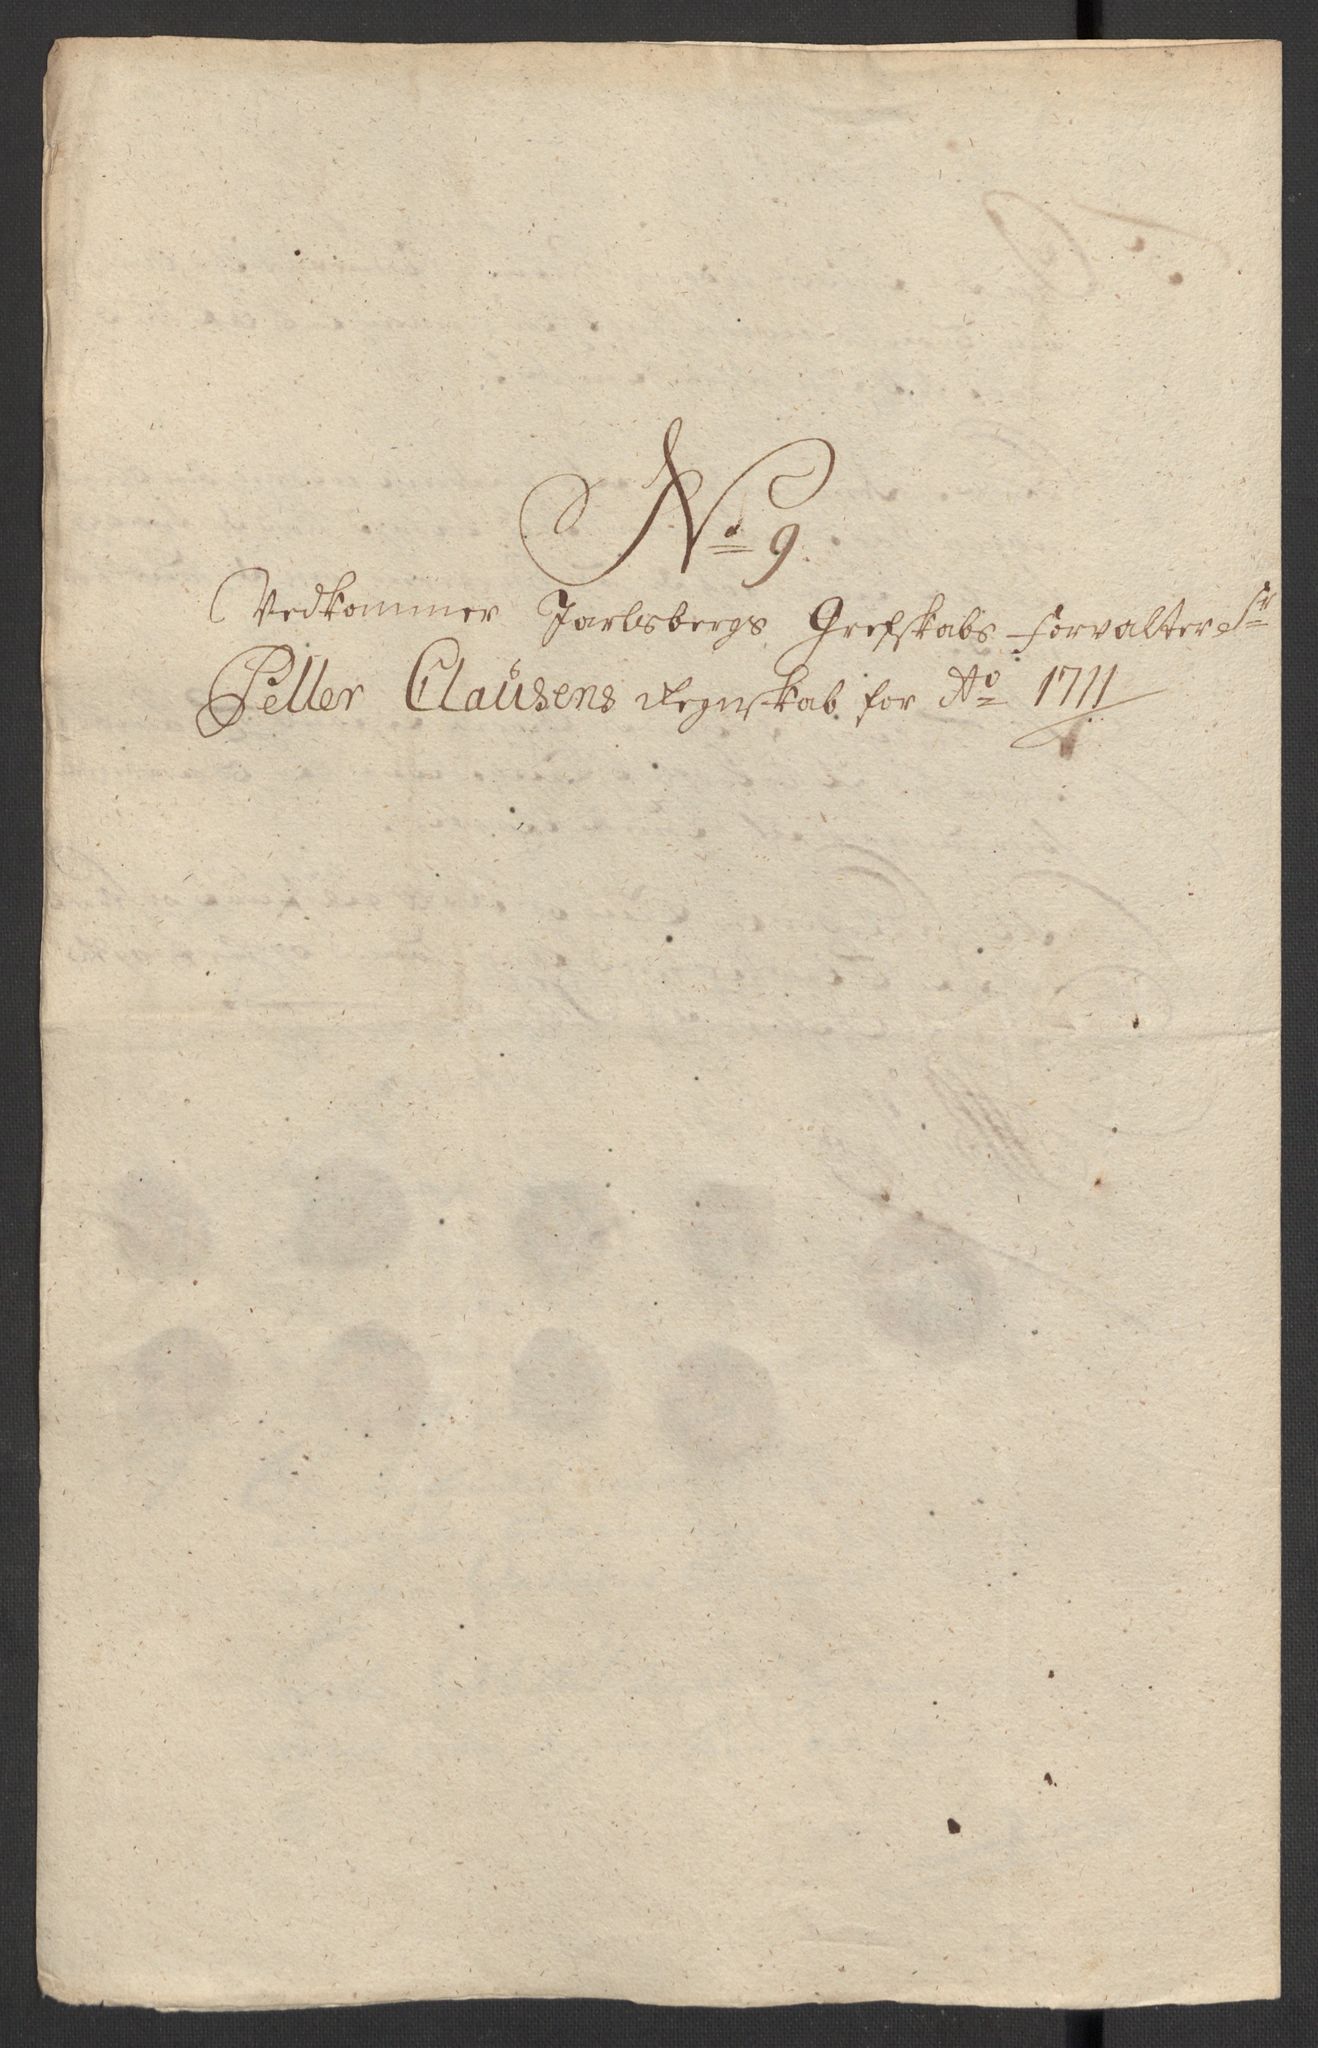 No 9
Vedkommer Jarlsbergs Grefskabs Forvalter Sr
Petter Clausens Regnskab for Ao 1711